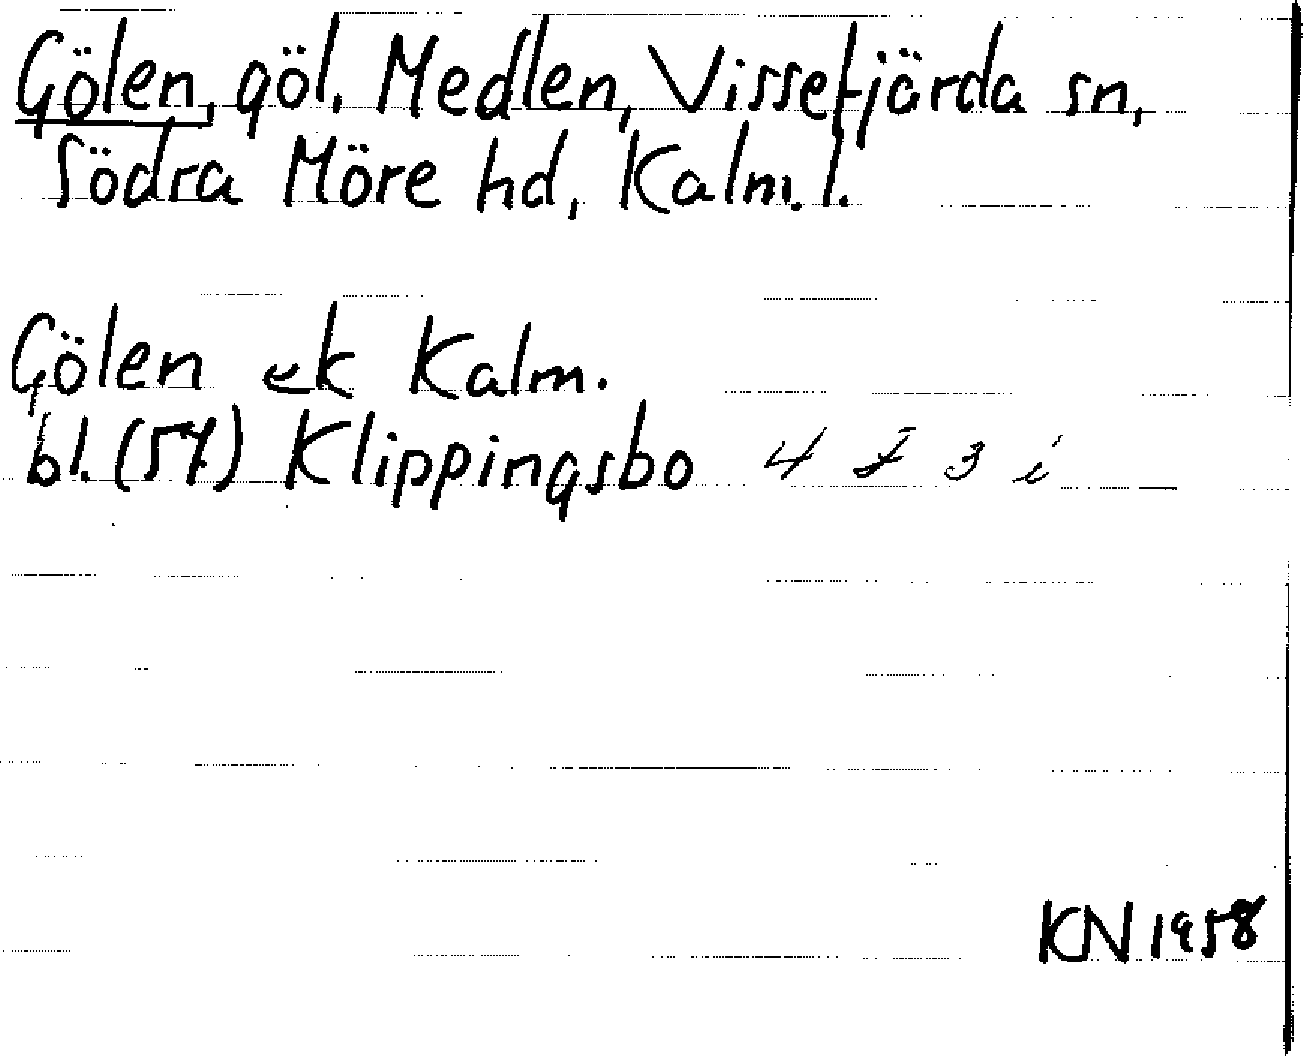 Gölen, göl, Medlen, Vissefjärda sn,
Södra Möre hd, Kalm. l.
Gölen ek Kalm.
bl. (57) Klippingsbo 4 F 3 i
KN 1958